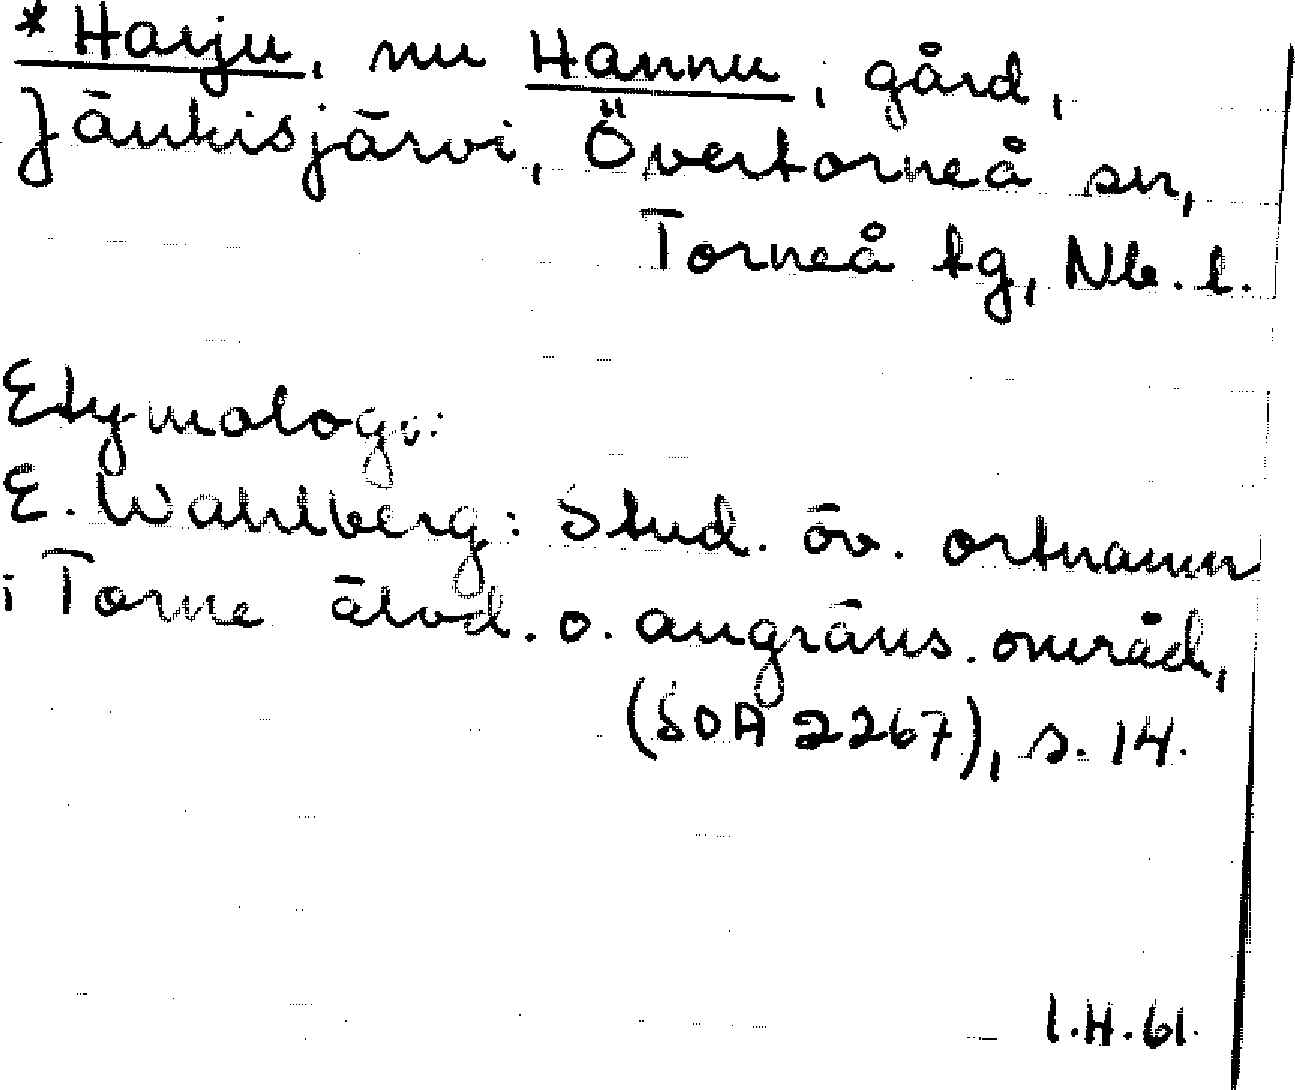 *Harju, nu Hannu, gård,
Jänkisjärvi, Övertorneå sn,
Torneå tg, Nb. l.
Etymologi:
E. Wahlberg: Stud. öv. ortnamn
i Torne älvd. o. angräns.områd,
(SOA 2267), s. 14.
I.H. 61.